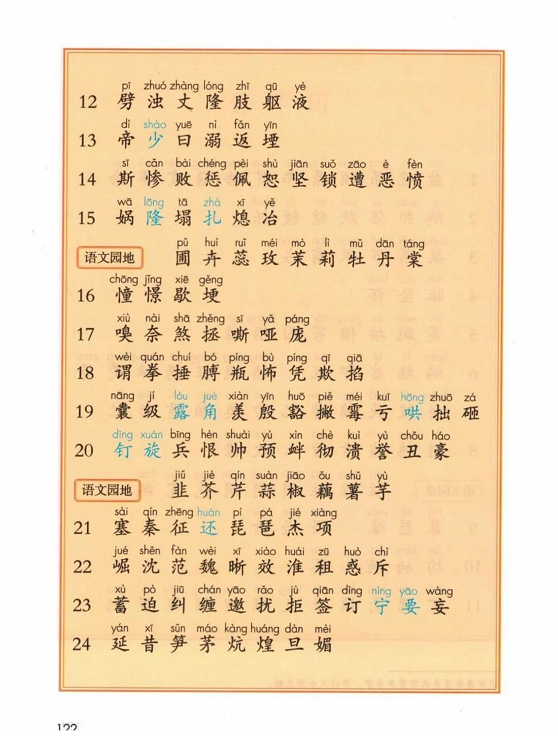 pī zhuó zhàng lóng zhī qū yè
12 劈 浊 丈 隆 肢 躯 液
dì shào yuē nì fǎn yīn
13 帝 少 曰 溺 返 堙
sī cǎn bài chéng pèi shù jiān suǒ zāo è fèn
14 斯 惨 败 惩 佩 恕 坚 锁 遭 恶 愤
wā lōng tā zhá xī yě
15 娲 隆 塌 扎 熄 冶
pǔ huì ruǐ méi mò lì mǔ dān táng
语文园地 圃 卉 蕊 玫 茉 莉 牡 丹 棠
chōng jǐng xiē gěng
16 憧 憬 歇 埂
xiù nài shā zhěng sī yǎ páng
17 嗅 奈 煞 拯 嘶 哑 庞
wèi quán chuí bó píng bù píng qī qiā
18 谓 拳 捶 脖 瓶 怖 凭 欺 掐
nāng jí lòu jué xiàn yīn huō piě méi kuī hōng zhuō zá
19 囊 级 露 角 羡 殷 豁 撇 霉 亏 哄 拙 砸
dīng xuán bīng hèn shuài yù xìn chè kuì yù chǒu háo
20 钉 旋 兵 恨 帅 预 衅 彻 溃 誉 丑 豪
jiǔ jiè qín suàn jiāo ǒu shǔ yù
语文园地 韭 芥 芹 蒜 椒 藕 薯 芋
sài qín zhēng huán pí pá jié xiàng
21 塞 秦 征 还 琵 琶 杰 项
jué shěn fàn wèi xī xiào huái zū huò chì
22 崛 沈 范 魏 晰 效 淮 租 惑 斥
xù pò jiū chán yāo rǎo jù qiān dìng níng yāo wàng
23 蓄 迫 纠 缠 邀 扰 拒 签 订 宁 要 妄
yán xī sǔn máo kàng huáng dàn mèi
24 延 昔 笋 茅 炕 煌 旦 媚
122